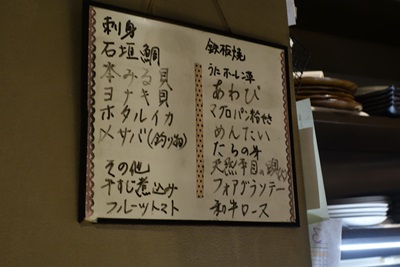 刺身
石垣鯛
本みる貝
ヨナキ貝
ホタルイカ
〆サバ(釣り物)
その他
牛すじ煮込み
フルーツトマト
鉄板焼
うたホーレン草
あわび
マグロパン粉せ
めんたい
たらの芽
天然平目の
フォアグランテー
和牛ロース